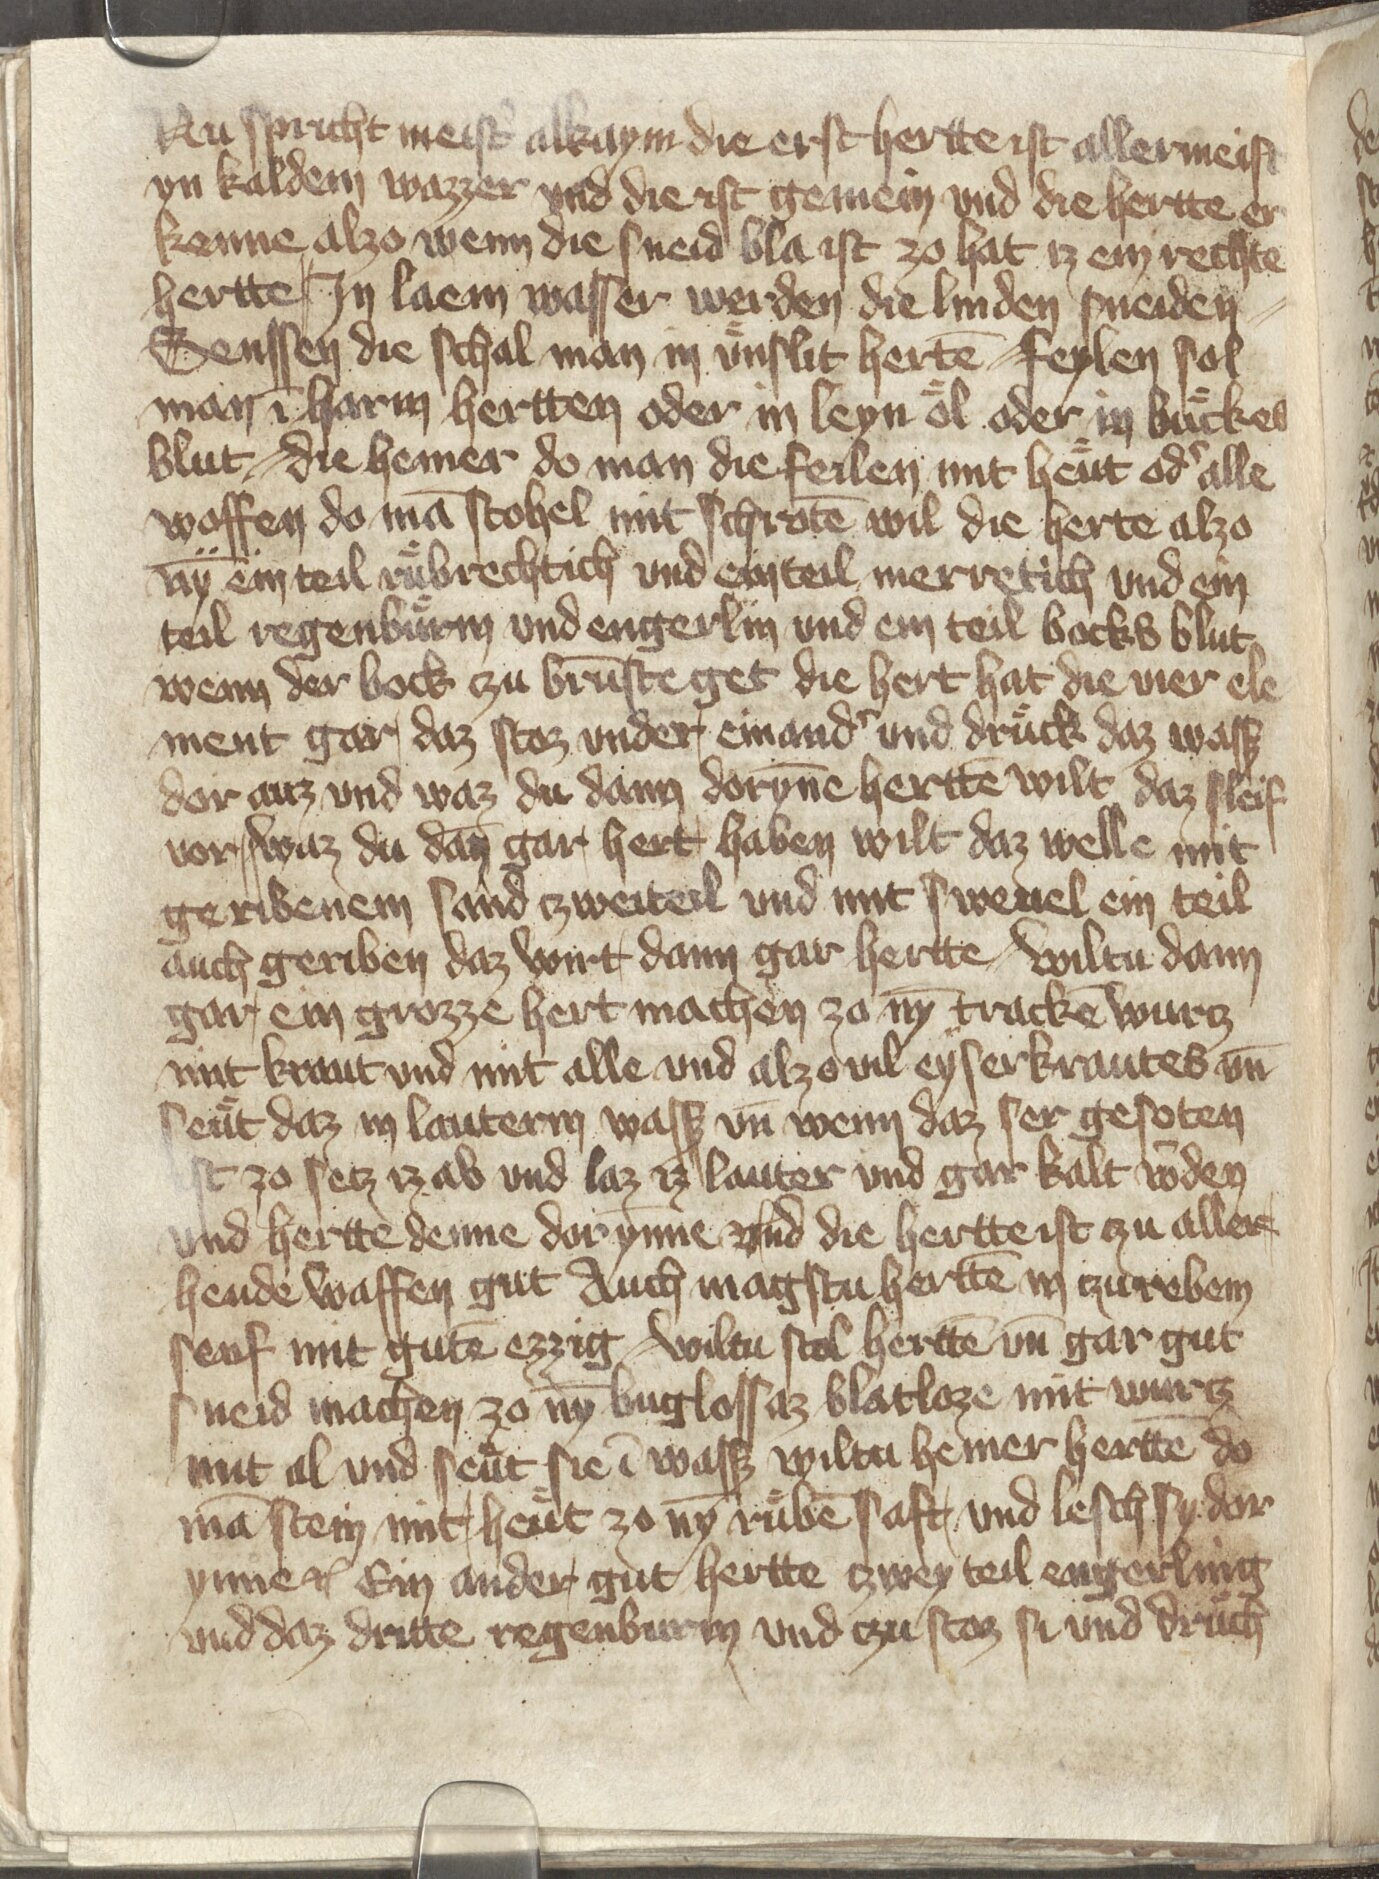 Nu spricht meist' alkaym die erst hertte ist allermeist
yn kaldem wazzer vnd die ist gemein vnd die hertte er
kenne alzo wenn die sneid bla ist zo hat iz ein rechte
hertte In laem wasser werden die linden sneiden
Senssen die schal man in vͤnslit hertē feylen sol
man ī harm hertten oder in leyn oͤl oder in buͤckes
blut die hemer do man die feilen mit heuͤt od' alle
woffen do mā stohel mit schrotē wil die herte alzo
nÿ ein teil ruͤbrechtich vnd ein teil merretich vnd ein
teil regenbuͤrm vnd engerlin vnd ein teil bocks blut
wenn der bock czu brūste get die hert hat die vier ele
ment gar daz stoz vnder einand' vnd druͤck daz wassz
dor auz vnd waz du dann dorȳne herttē wilt daz sleif
vor waz du dan̄ gar hert haben wilt daz welle mit
geribenem sand czweiteil vnd mit sweuel ein teil
auch geriben daz wirt dann gar hertte wiltu dann
gar ein grozze hert machen zo nȳ trackē wurcz
mit kraut vnd mit alle vnd alzo vil eyserkrautes vn̄
seuͤt daz in lauterm wassz vn̄ wenn daz ser gesoten
ist zo setz iz ab vnd laz iz lauter vnd gar kalt w̄den
vnd hertte denne dor ynne vnd die hertte ist czu aller
hende waffen gut Auch magstu herttē in czurebem
senf mit gutē ezzig wiltu stol herttē vn̄ gar gut
sneid machen zo nȳ buglossaz blatloze mit wurcz
mit al vnd seuͤt sie ī wassz wiltu hemer herttē do
mā stein mit heuͤt zo nȳ ruͤbē saft vnd lesch sy dor
ynne Ein ander gut hertte czwey teil engerling
vnd daz dritte regenburm vnd czu stoz si vnd druͤch